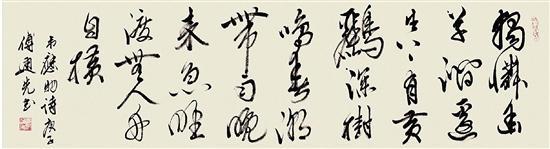 獨憐幽
草澗邊
生上有黄
鸝深樹
鳴春潮
帶雨晚
來急野
渡無人舟
自横
韦應物诗
傅光书